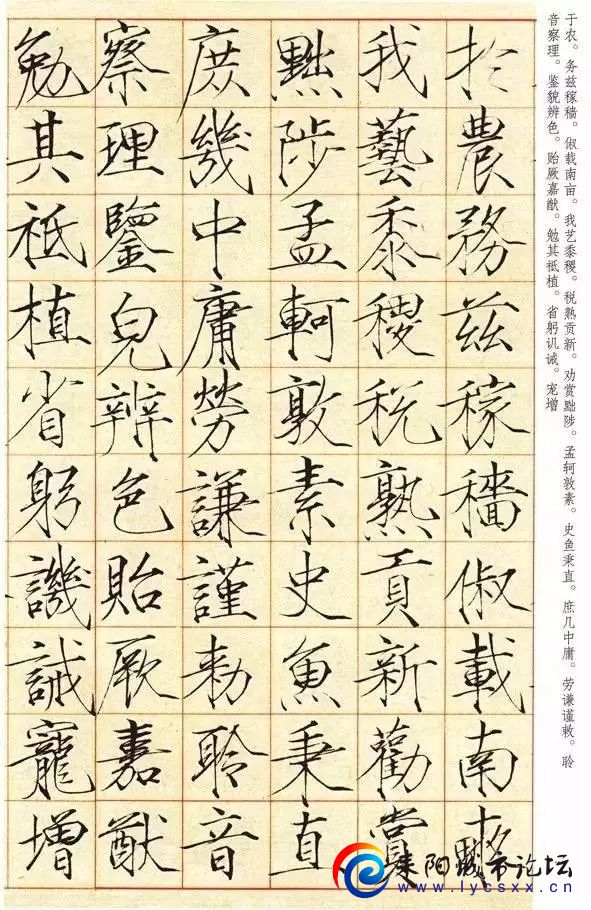 于农。务兹稼穑。俶载南亩。我艺黍稷。税熟贡新。劝赏黜陟。孟轲敦素。史鱼秉直。庶几中庸。劳谦谨敕。聆
音察理。鉴貌辨色。贻厥嘉猷。勉其祗植。省躬讥诫。宠增
於農務茲稼穡俶載南畝
我藝黍稷稅熟貢新勸賞
黜陟孟軻敦素史魚秉直
庶幾中庸勞謙謹勑聆音
察理鑒皃辨色貽厥嘉猷
勉其祗植省躬譏誡寵增
耒阳城市论坛
www.lycsxx.cn